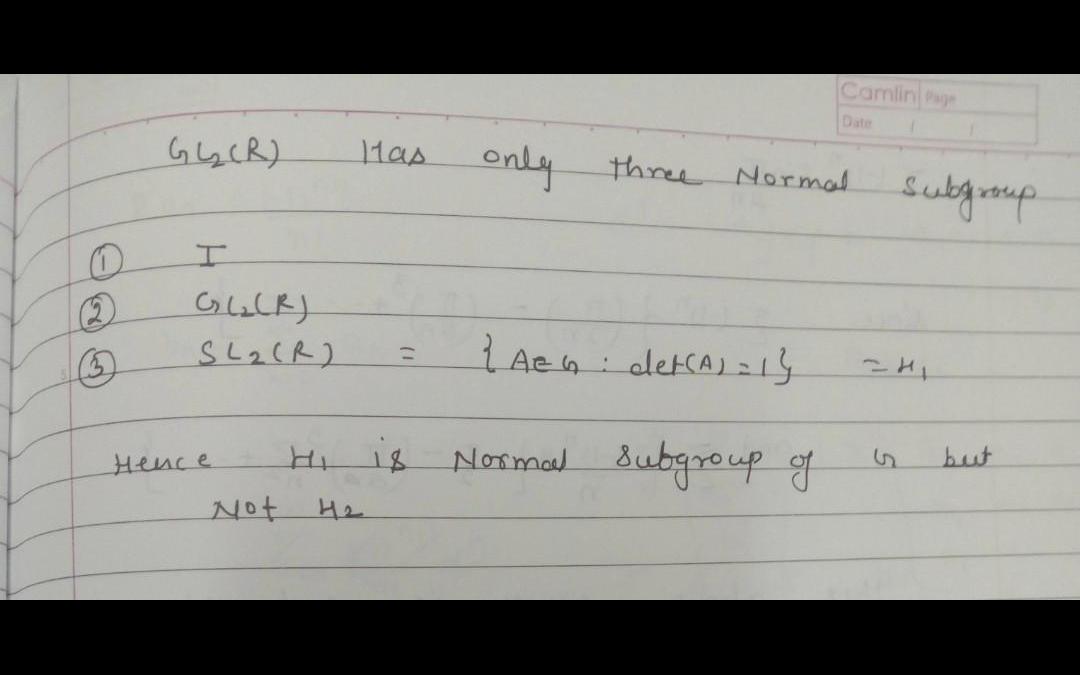 Camlin Page
Date / /
GL₂(R) Has only three Normal Subgroup
① I
② GL₂(R)
③ SL₂(R) = { A∈G : det(A) = 1 } = H₁
Hence H₁ is Normal Subgroup of G but
Not H₂